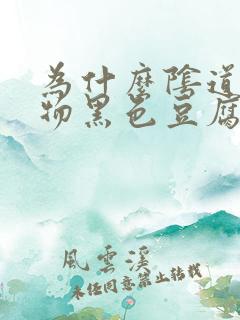 為什麼陰道
物黑色豆腐
風雲溪
未經同意禁止轉載